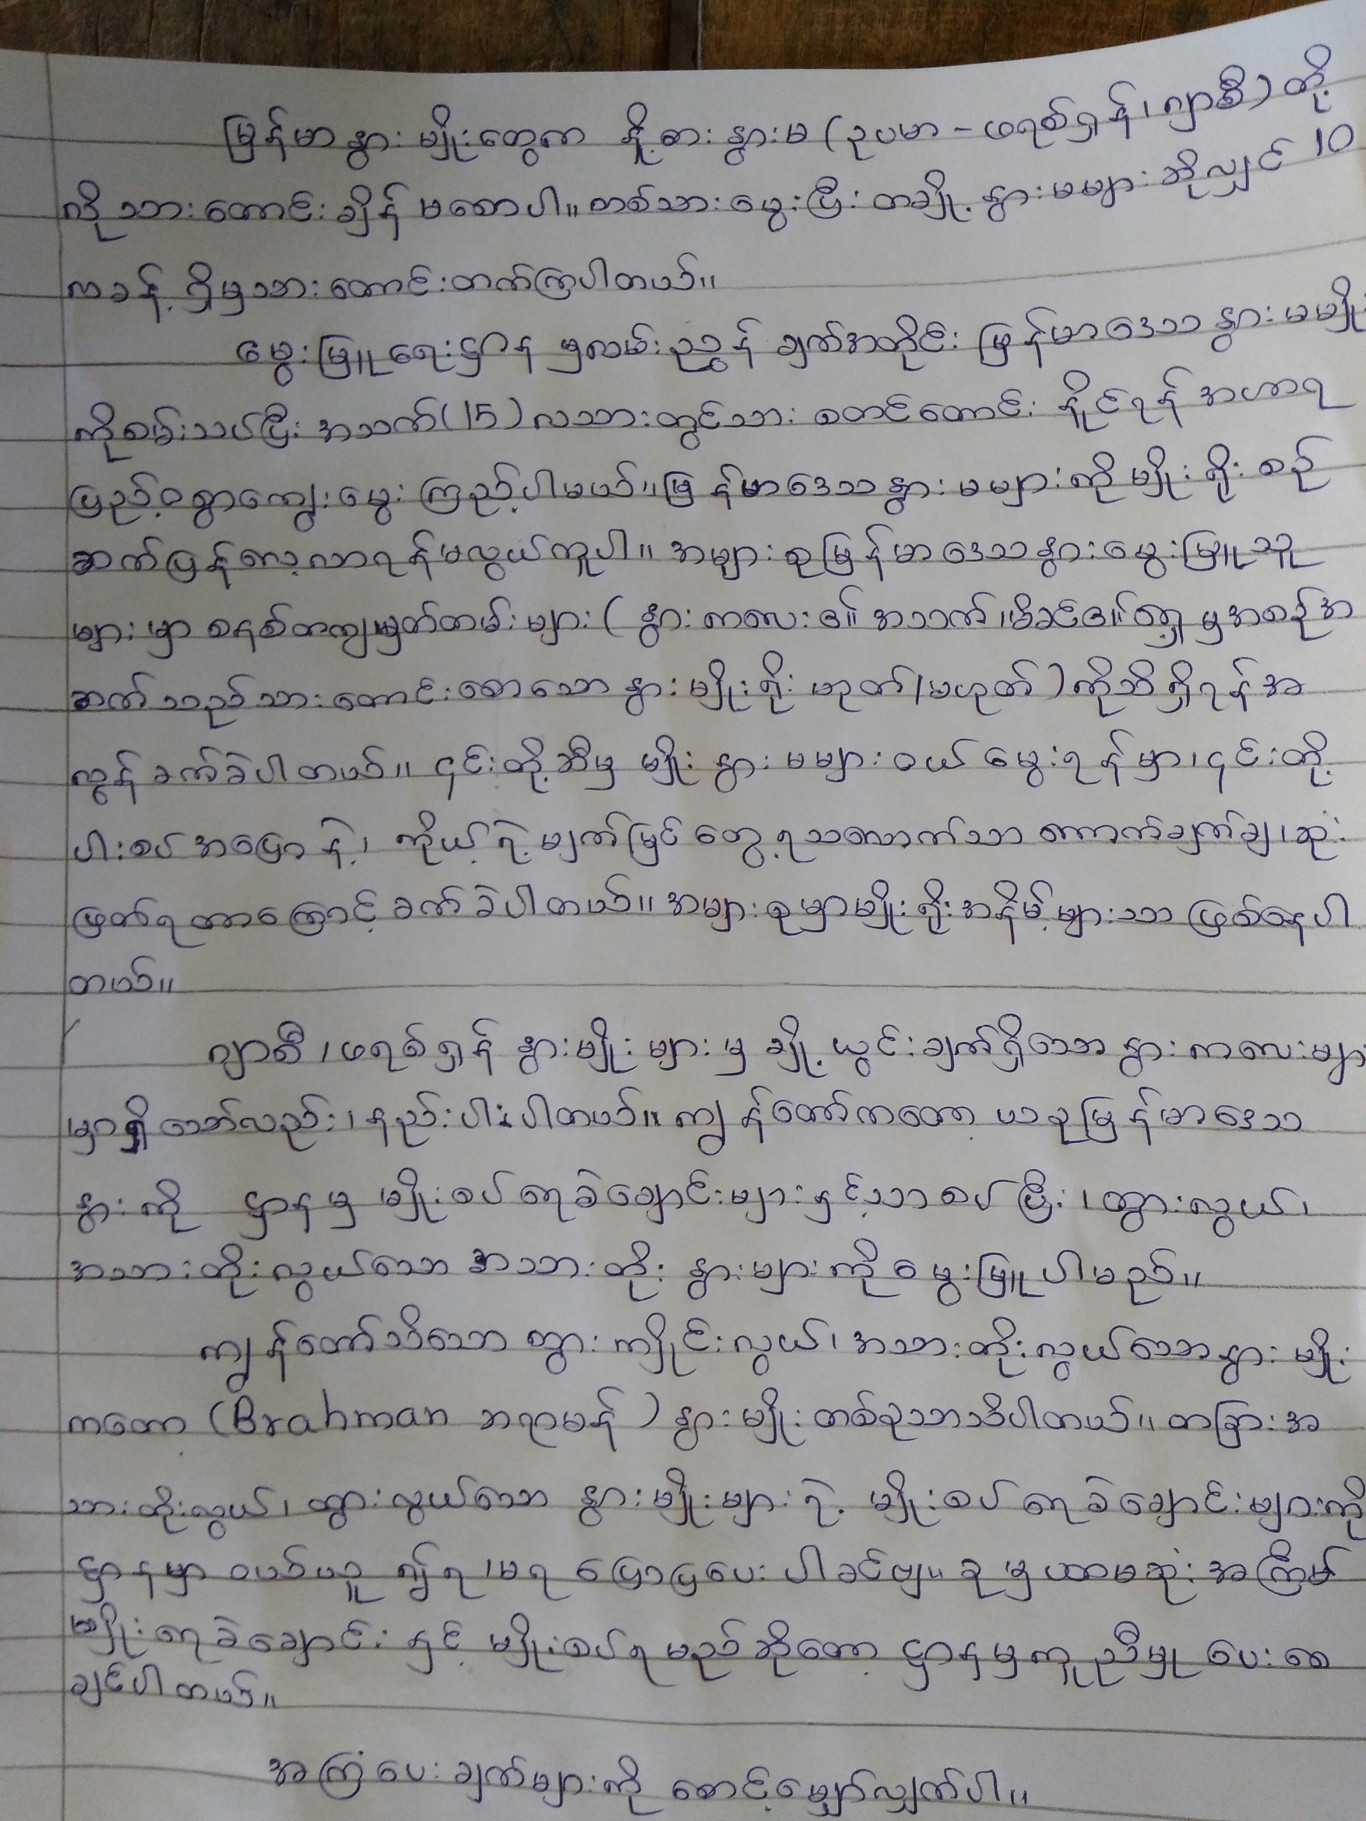 မြန်မာနွားမျိုးတွေက နို့စားနွားမ (ဥပမာ - ဖရစ်ရှန်၊ ဂျာစီ) တို့
လို သားတောင်းချိန် မစောပါ။ တစ်သားမွေးပြီး တချို့ နွားမများ ဆိုလျှင် 10
လခန့် ရှိမှသားတောင်းတက်ကြပါတယ်။
မွေးမြူရေးဌာန မှလမ်းညွှန် ချက်အတိုင်း မြန်မာဒေသ နွားမမျိုး
ကိုစမ်းသပ်ပြီး အသက် (15) လသားတွင်သား စတင်တောင်း နိုင်ရန် အဟာရ
ပြည့်ဝစွာကျွေးမွေး ကြည့်ပါမယ်။ မြန်မာဒေသနွား မများကို မျိုး ရိုး စဉ်
ဆက်ပြန်လေ့လာရန်မလွယ်ကူပါ။ အများစုမြန်မာဒေသနွားမွေးမြူသူ
များမှာ စနစ်တကျမှတ်တမ်းများ ( နွားကလေး၏ အသက်၊ မိခင်၏ရှေ့ မှအစဉ်အ
ဆက်သည်သားတောင်းစောသော နွားမျိုးရိုး ဟုတ်/မဟုတ် ) ကိုသိရှိရန်အ
လွန် ခက်ခဲပါတယ်။ ၎င်းတို့ဆီမှ မျိုး နွား မများ ဝယ်မွေးရန်မှာ၊ ၎င်းတို့
ပါးစပ်အပြောနဲ့၊ ကိုယ့်ရဲ့မျက်မြင်တွေ့ရသလောက်သာ ကောက်ချက်ချ၊ ဆုံး
ဖြတ်ရတာကြောင့် ခက်ခဲပါတယ်။ အများစုမှာမျိုးရိုးအနိမ့်များသာ ဖြစ်နေပါ
တယ်။
ဂျာစီ၊ ဖရစ်ရှန် နွားမျိုး များမှ ချို့ယွင်းချက်ရှိသောနွားကလေးများ
မှာရှိသော်လည်း၊ နည်းပါးပါတယ်။ ကျွန်တော်ကတော့ ယခုမြန်မာဒေသ
နွားကို ဌာနမှ မျိုးစပ်ရေခဲချောင်းများနှင့်သာစပ်ပြီး၊ ထွားလွယ်၊
အသားတိုးလွယ်သော အသားတိုး နွားများကို မွေးမြူပါမည်။
ကျွန်တော်သိသော ထွားကျိုင်းလွယ်၊ အသားတိုးလွယ်သောနွားမျိုး
ကတော့ (Brahman ဘရာမန်) နွားမျိုးတစ်ခုသာသိပါတယ်။ တခြားအ
သားတိုးလွယ်၊ ထွားလွယ်သော နွားမျိုးများရဲ့ မျိုးစပ်ရေခဲချောင်းများကို
ဌာနမှာ ဝယ်ယူ၍ရ/မရ ပြောပြပေးပါခင်ဗျ။ ခုမှ ပထမဆုံးအကြိမ်
မျိုးရေခဲချောင်းနှင့် မျိုးစပ်ရမည်ဆိုတော့ ဌာနမှကူညီမှု ပေးစေ
ချင်ပါတယ်။
အကြံပေးချက်များကို စောင့်မျှော်လျှက်ပါ။